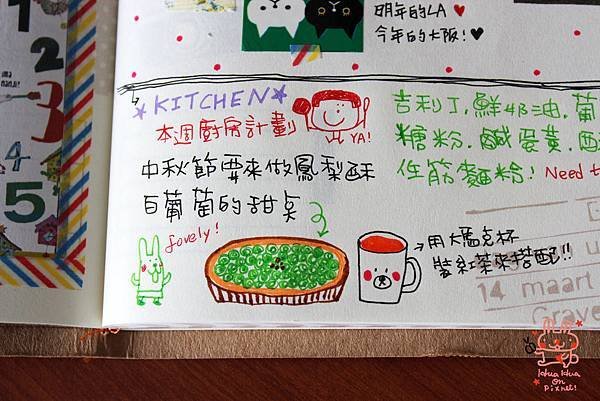 明年的LA ♥
今年的大阪!♥
1
2
3
4
5
*KITCHEN*
本週廚房計劃
YA!
中秋節要來做鳳梨酥
白葡萄的甜點
lovely!
吉利丁.鮮奶油.葡
糖粉.鹹蛋黃.
低筋麵粉! Need t
用大馬克杯
裝紅茶來搭配!!
14 maart
Grave
Hua Hua
On
Pixnet!